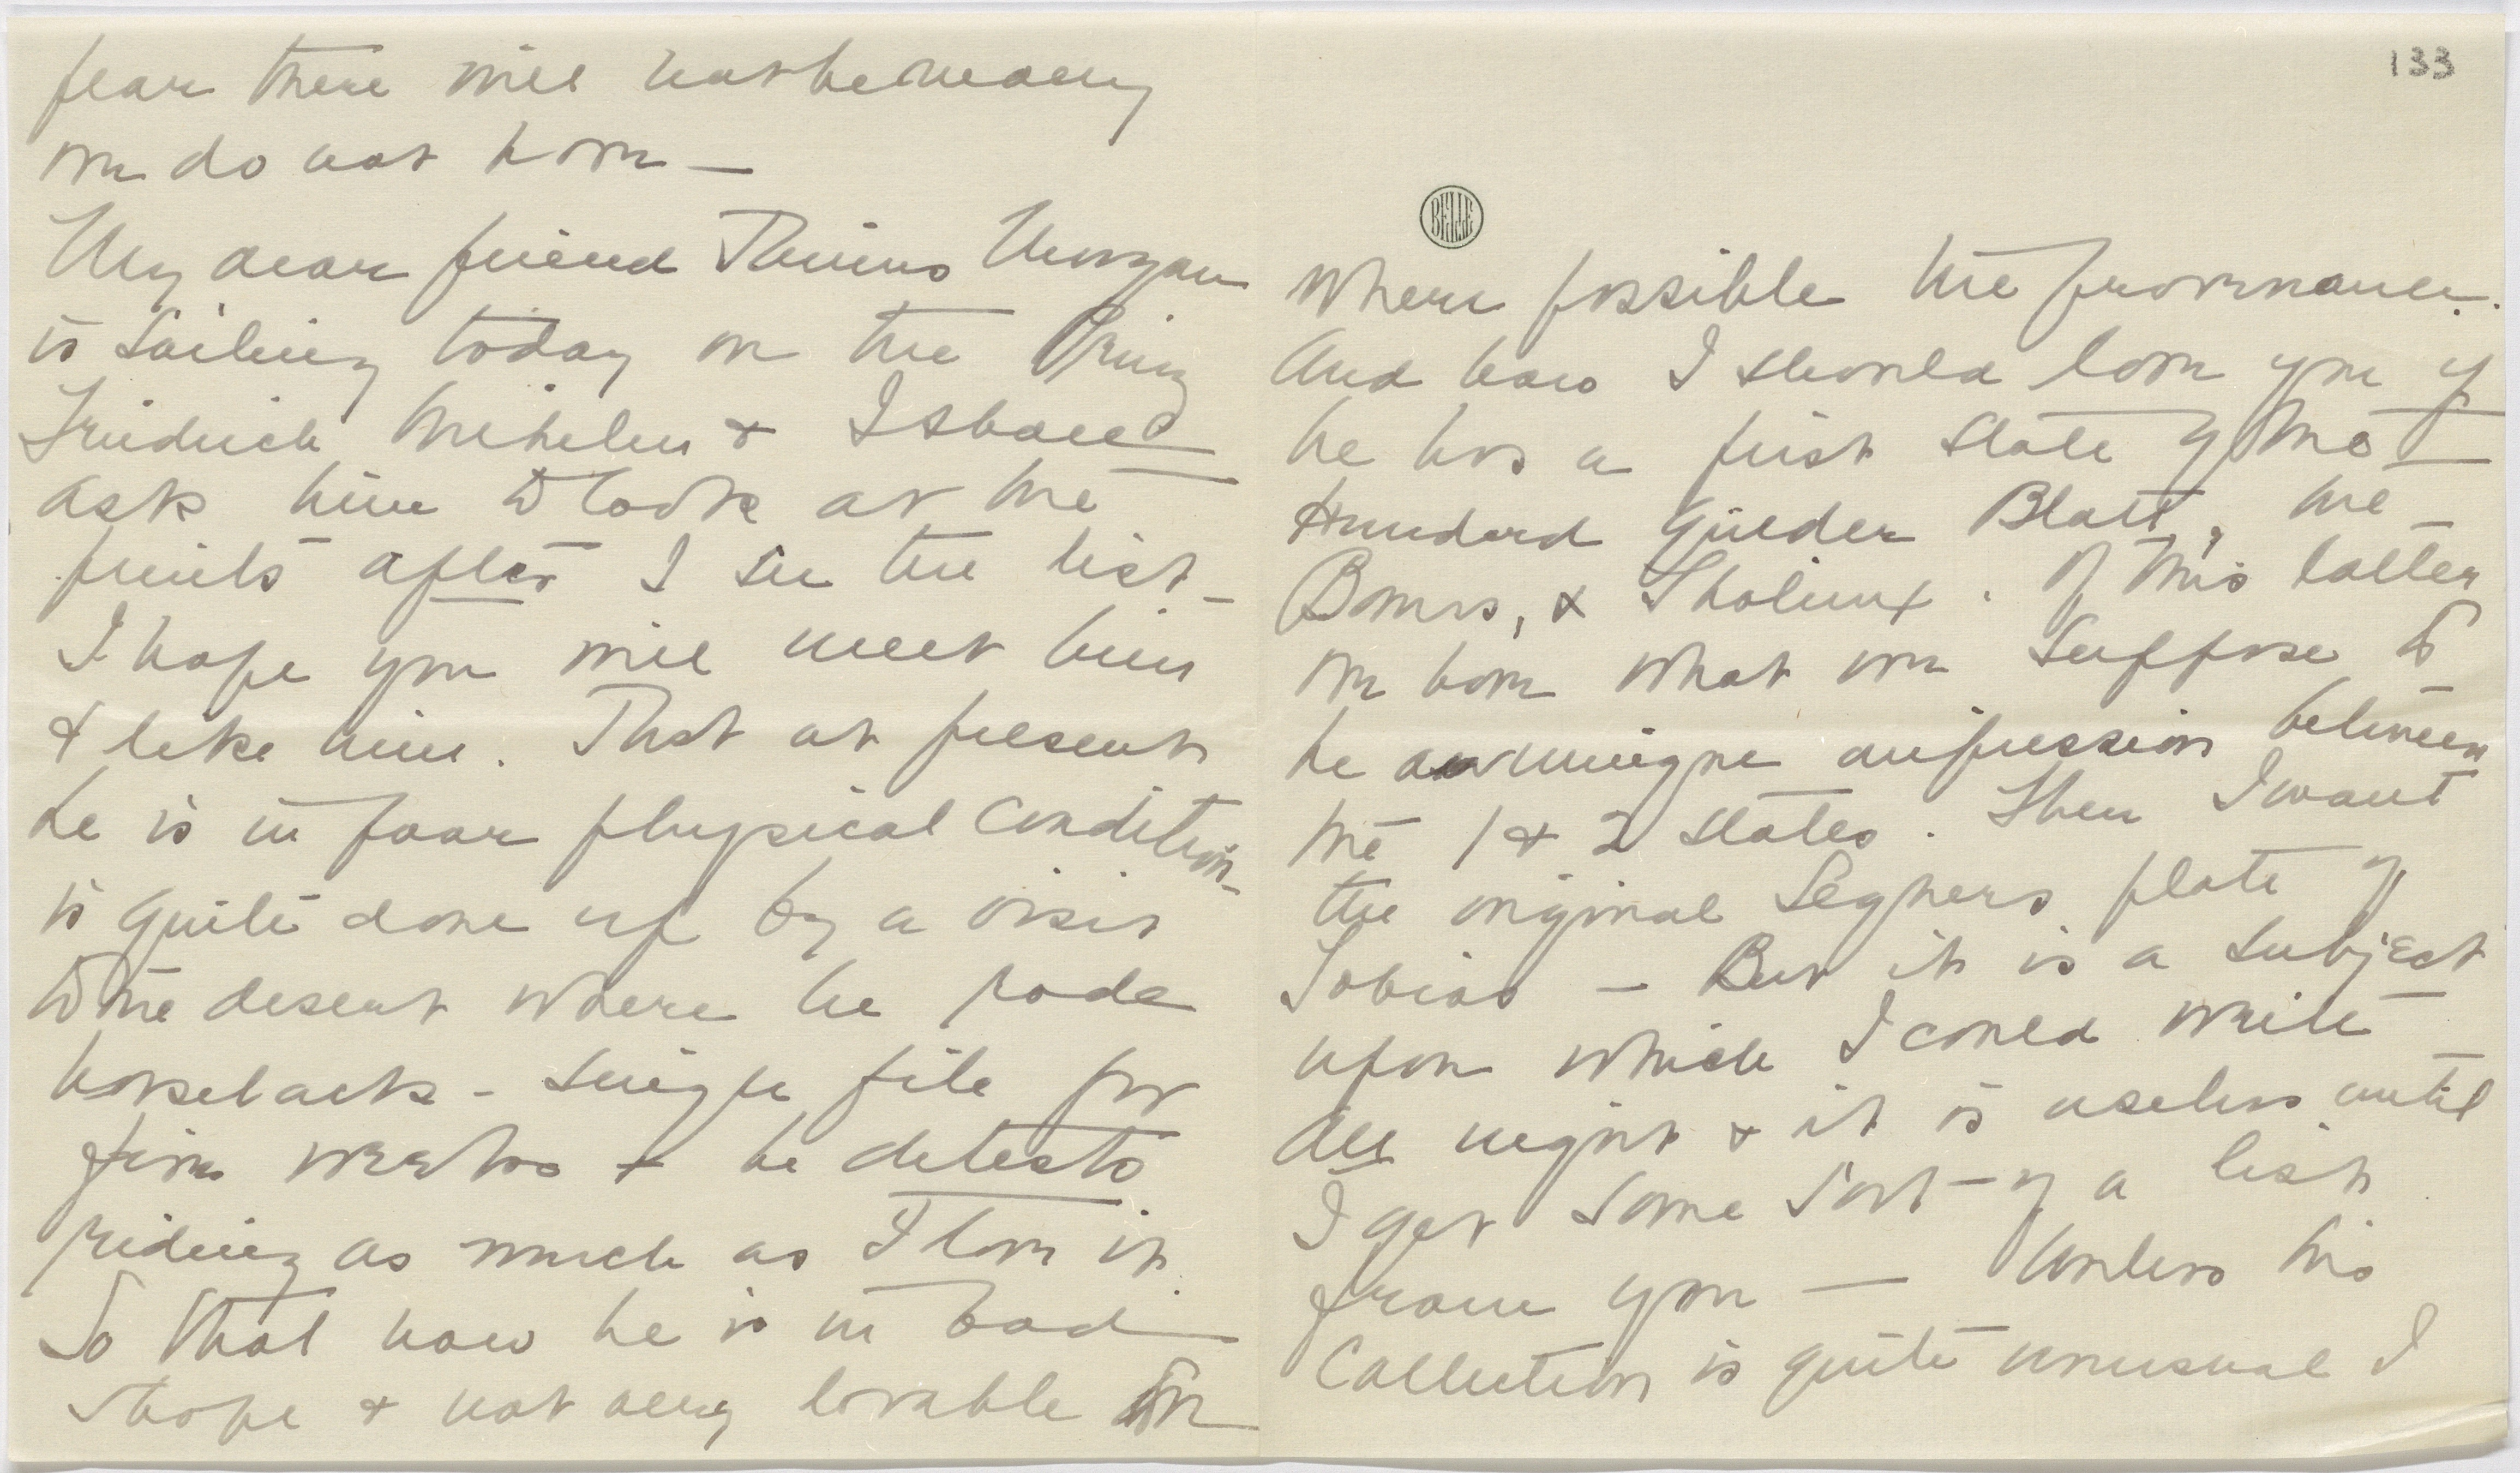 fear there will not be many
we do not have —
My dear friend Junius Morgan
is sailing today on the Prinz
Friedrich Wilhelm & I shall
ask him to look at the
prints after I see the list —
I hope you will meet him
& like him. Just at present
he is in poor physical condition —
is quite done up by a visit
to the desert where he rode
horseback - single file for
five weeks & he detests
riding as much as I love it.
So that now he is in bad
shape & not very lovable
133
BELLE
where possible the provenance.
And how I should love you if
he has a first state of the
Hundred Guilder Blatt, the
Bonus, & Tholinx. Of this latter
we have what we suppose to
be an unique impression between
the 1 & 2 states. Then I want
the original Seghers plate of
Tobias — But it is a subject
upon which I could write
all night & it is useless until
I get some sort of a list
from you — Unless his
Collection is quite unusual I